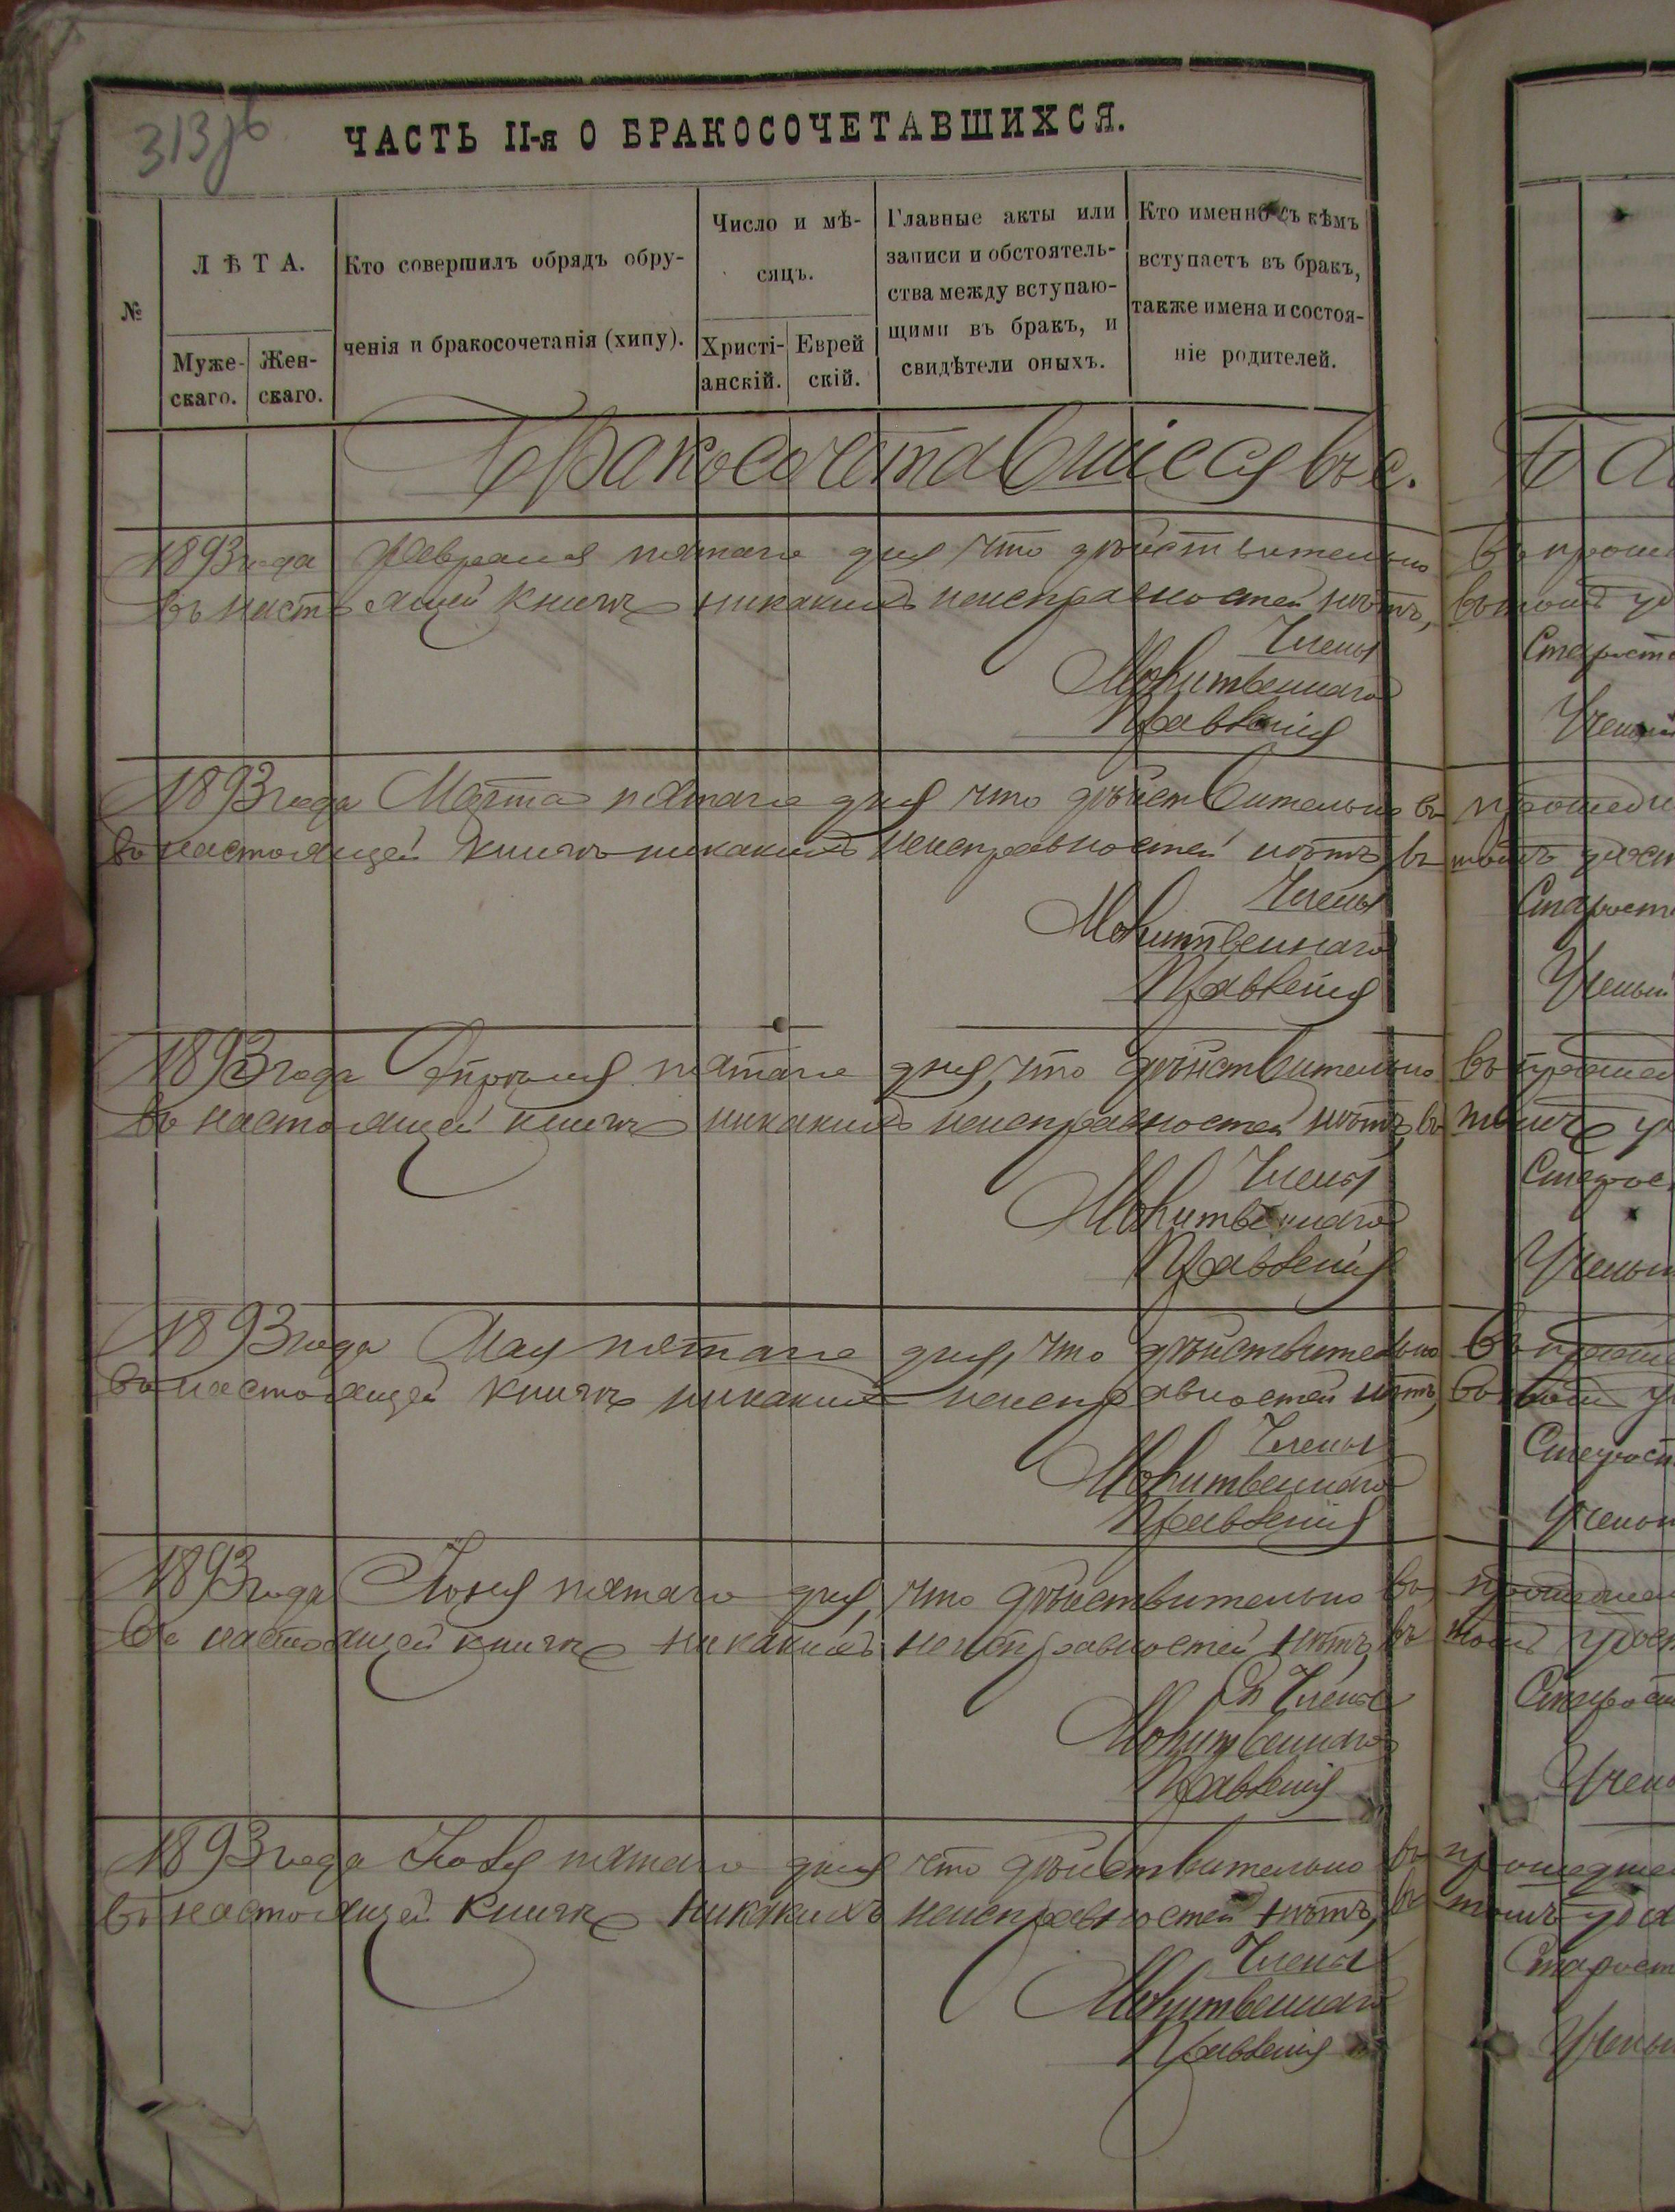 313об
ЧАСТЬ II-я О БРАКОСОЧЕТАВШИХСЯ.
№
ЛѢТА.
Муже-
скаго.
Жен-
скаго.
Кто совершилъ обрядъ обру-
ченія и бракосочетанія (хипу).
Число и мѣ-
сяцъ.
Христі-
анскій.
Еврей
скій.
Главные акты или
записи и обстоятель-
ства между вступаю-
щими въ бракъ, и
свидѣтели оныхъ.
Кто именно съ кѣмъ
вступаетъ въ бракъ,
также имена и состоя-
ніе родителей.
Бракосочетавшіеся
1893 года Февраля пятаго дня что дѣйствительно въ
въ настоящей книгѣ никакихъ неисправностей нѣтъ, въ томъ
Члены
Молитвеннаго
Правленія
1893 года Марта пятаго дня что дѣйствительно въ
въ настоящей книгѣ никакихъ неисправностей нѣтъ, въ томъ
Члены
Молитвеннаго
Правленія
1893 года Апрѣля пятаго дня, что дѣйствительно въ
въ настоящей книгѣ никакихъ неисправностей нѣтъ, въ томъ
Члены
Молитвеннаго
Правленія
1893 года Мая пятаго дня, что дѣйствительно въ
въ настоящей книгѣ никакихъ неисправностей нѣтъ, въ томъ
Члены
Молитвеннаго
Правленія
1893 года Іюня пятаго дня, что дѣйствительно въ
въ настоящей книгѣ никакихъ неисправностей нѣтъ, въ томъ
Члены
Молитвеннаго
Правленія
1893 года Іюля пятаго дня что дѣйствительно въ
въ настоящей книгѣ никакихъ неисправностей нѣтъ, въ томъ
Члены
Молитвеннаго
Правленія